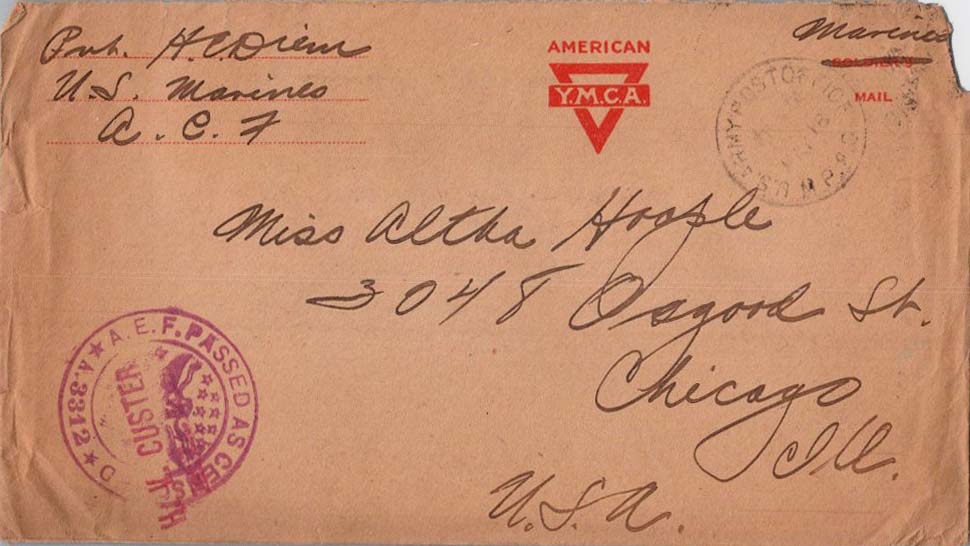 Pvt. H.C. Diem
U.S. Marines
A. E. F
AMERICAN
Y.M.C.A.
Marines
SOLDIER'S
MAIL
U.S. ARMY POST OFFICE
M.P.E.S.
18
Miss Altha Hoople
3048 Osgood St.
Chicago
Ill.
U.S.A.
A.E.F. PASSED AS CENSORED
A.3312
CUSTER